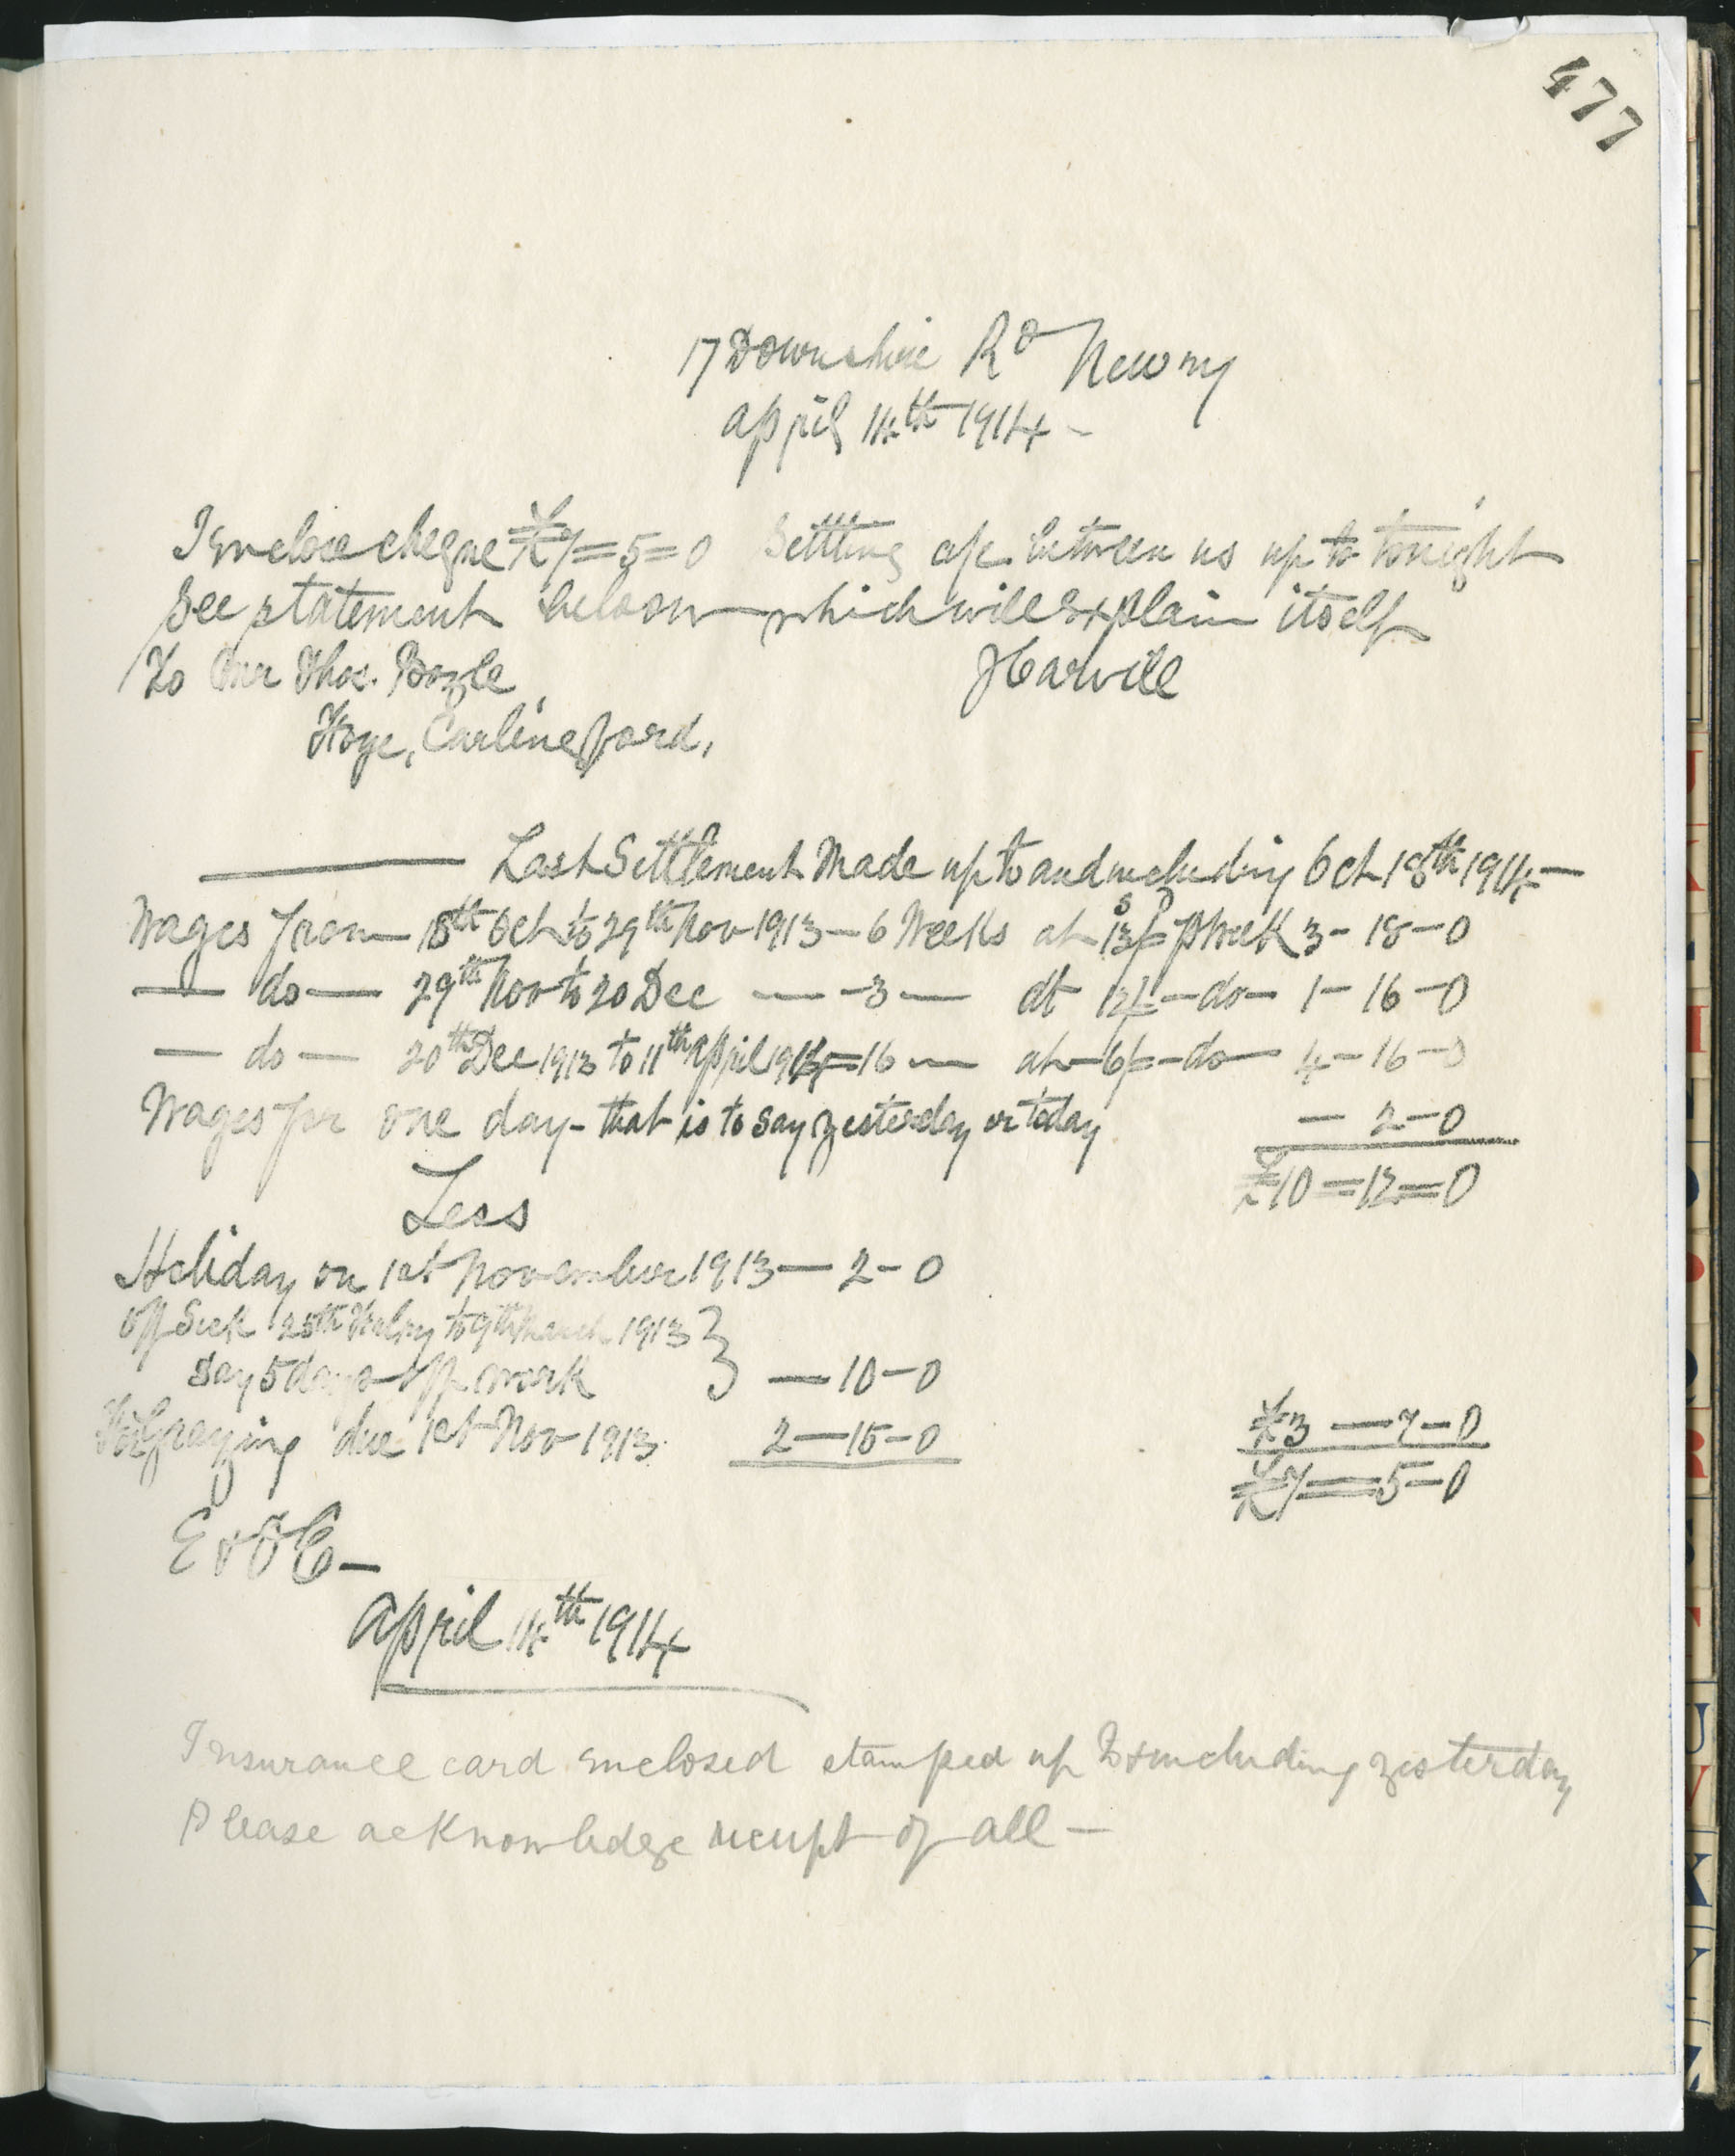 477
17 Downshire Rd Newry
April 14th 1914 -
I enclose cheque £7=5=0 Settling a/c between us up to tonight
See statement below which will explain itself
To Mr Thos. Boyle
JHarvill
Carlingford,
Last Settlement Made up to and including Oct 18th 1914 —
Wages from 18th Oct to 29th Nov 1913 — 6 Weeks at 13/= P Week 3 - 18 - 0
— do — 29th Nov to 20 Dec — - 3 — at 12/= - do - 1 - 16 - 0
— do — 20th Dec 1913 to 11th April 1914 = 16 — at 6/= - do - 4 - 16 - 0
Wages for one day - that is to say yesterday or today — 2 - 0
£10 = 12 = 0
Less
Holiday on 1st November 1913 — 2 - 0
Off Sick 25th Febry to 9th March 1913 }
say 5 days off work — 10 - 0
For Grazing due 1st Nov 1913. 2 — 15 - 0
£3 — 7 - 0
£7 = 5 - 0
E & O E —
April 14th 1914
Insurance card enclosed stamped up to & including yesterday
Please acknowledge receipt of all —